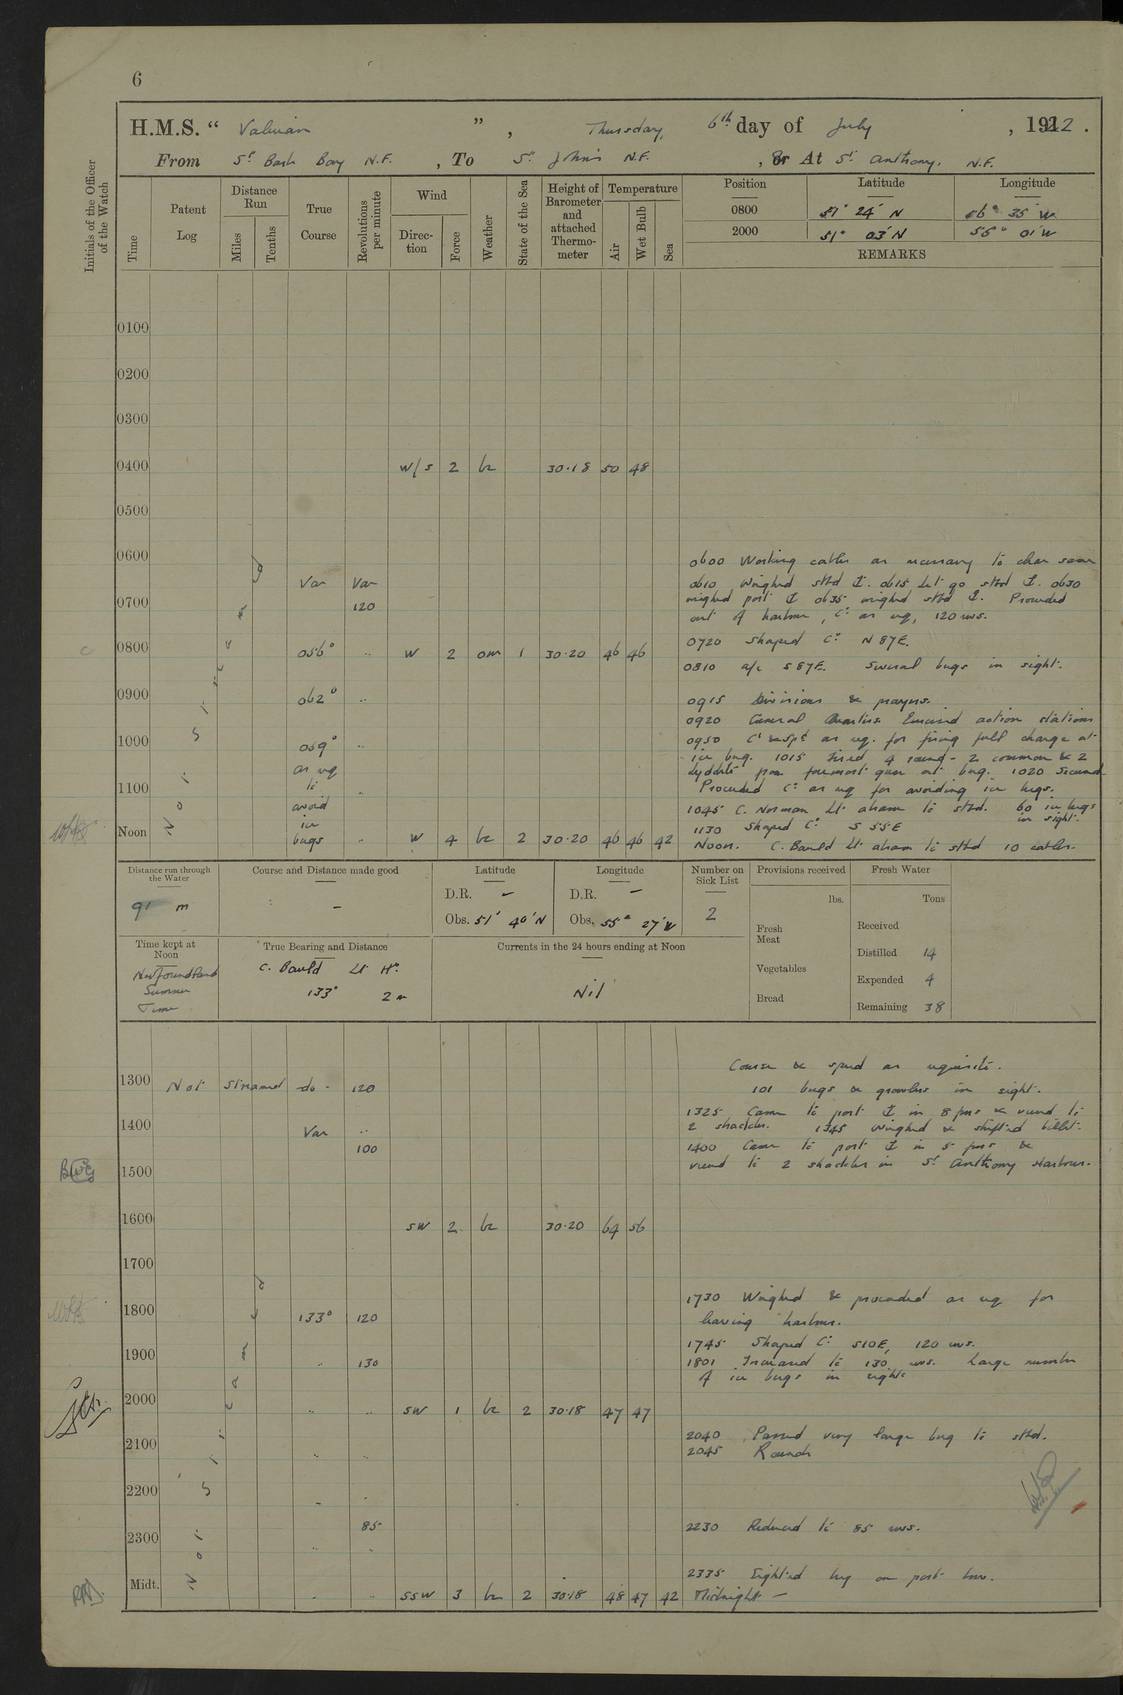 6
H.M.S. “ Valerian ” , Thursday, 6th day of July , 1922 .
From St Barb Bay N.F. , To St Johns N.F. , or At St Anthony, N.F.
Initials of the Officer of the Watch
Time
Patent Log
Distance Run
Miles
Tenths
True Course
Revolutions per minute
Wind
Direction
Force
Weather
State of the Sea
Height of Barometer and attached Thermometer
Temperature
Air
Wet Bulb
Sea
Position Latitude Longitude
0800 51° 24' N 56° 35' W
2000 51° 03' N 55° 01' W
REMARKS
0100
0200
0300
0400 W/S 2 bc 30.18 50 48
0500
0600
Var Var
0700 120
0800 056° " W 2 om 1 30.20 46 46
0900 062° "
1000 069° "
as req
1100 to "
avoid
ice
Noon bergs " W 4 bc 2 30.20 46 46 42
Not Streamed
0600 Working cables as necessary to clear same
0610 Weighed stbd ⚓. 0615 Let go stbd ⚓. 0630
weighed port ⚓ 0635 weighed stbd ⚓. Proceeded
out of harbour, Co as req, 120 revs.
0720 Shaped Co N 87E.
0810 a/c S 87E. Several bergs in sight.
0915 Divisions & prayers.
0920 General Quarters. Exercised action stations
0950 Co & Spd as req. for firing full charge at
ice berg. 1015 Fired 4 rounds - 2 common & 2
Lyddite from foremost gun at berg. 1020 Secured
Proceeded Co as req for avoiding ice bergs.
1045 C. Norman Lt. abeam to stbd. 60 ice bergs
in sight.
1130 Shaped Co S 55E
Noon. C. Bauld Lt. abeam to stbd 10 cables.
Distance run through the Water
91 m
Course and Distance made good
-
Latitude
D.R. -
Obs. 51° 40' N
Longitude
D.R. -
Obs. 55° 27' W
Number on Sick List
2
Provisions received
lbs.
Fresh Meat
Vegetables
Bread
Fresh Water
Tons
Received
Distilled 14
Expended 4
Remaining 38
Time kept at Noon
Newfoundland
Summer
Time
True Bearing and Distance
C. Bauld Lt Ho.
133° 2 m
Currents in the 24 hours ending at Noon
Nil
1300 Not Streamed -do- 120
1400 Var "
100
1500
1600 SW 2 bc 30.20 64 56
1700
1800 133° 120
1900 " 130
2000 " " SW 1 bc 2 30.18 47 47
2100 " "
2200 " "
85
2300 " "
Midt. " " SSW 3 bc 2 30.18 48 47 42
Not Streamed
Course & speed as requisite.
101 bergs & growlers in sight.
1325 Came to port ⚓ in 8 fms & veered to
2 shackles. 1345 Weighed & shifted billet.
1400 Came to port ⚓ in 5 fms &
veered to 2 shackles in St Anthony Harbour.
1730 Weighed & proceeded as req for
leaving harbour.
1745 Shaped Co S10E, 120 revs.
1801 Increased to 130 revs. Large number
of ice bergs in sight.
2040 Passed very large berg to stbd.
2045 Rounds
2230 Reduced to 85 revs.
2335 Sighted berg on port bow.
Midnight -